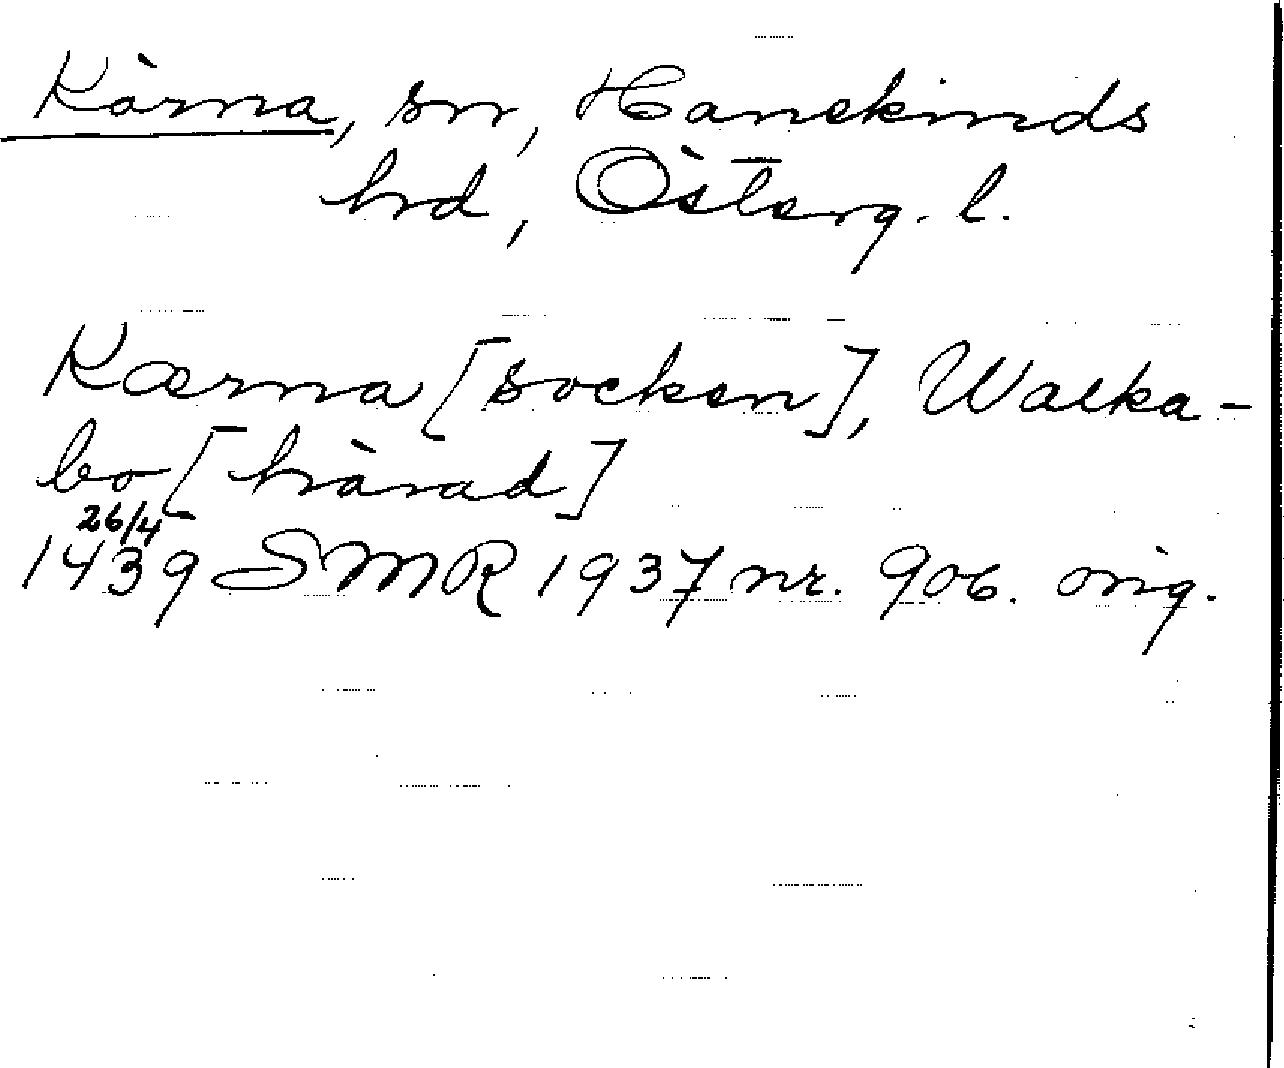 Kärna, sn, Hanekinds
hrd, Österg. l.
Kærna [socken], Walka-
bo [härad]
26/4
1439 SMR 1937 nr. 906. orig.